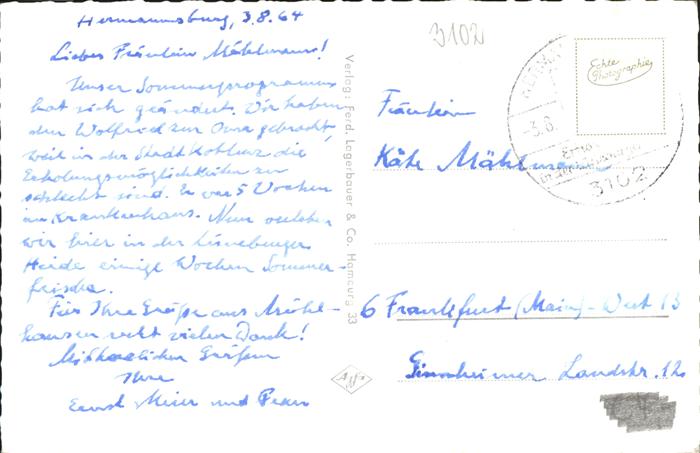 Hermannsburg, 3.8.64
Liebes Fräulein Mählmann!
Unser Sommerprogramm
hat sich geändert. Wir haben
den Wolfried zur Oma gebracht,
weil in der Stadt Koblenz die
Erholungsmöglichkeiten zu
schlecht sind. Er war 5 Wochen
im Krankenhaus. Nun erleben
wir hier in der Lüneburger
Heide einige Wochen Sommer-
frische.
Für Ihre Grüße aus Mühl-
hausen recht vielen Dank!
Mit herzlichen Grüßen
Ihre
Ernst Meier und
Verlag: Ferd. Lagerbauer & Co. Hamburg 33
Agfa
3102
Echte
Photographie
-3.8.
3102
Fräulein
Käte Mählmann
6 Frankfurt (Main)-West 13
Ginnheimer Landstr. 12